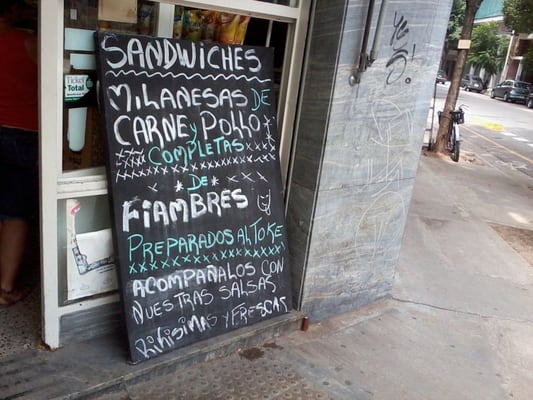 SANDWICHES
MILANESAS DE
CARNE y POLLO
COMPLETAS
DE
FIAMBRES
PREPARADOS AL TOKE
ACOMPAÑALOS CON
NUESTRAS SALSAS
RIKISIMAS Y FRESCAS
Ticket
Total
yes!